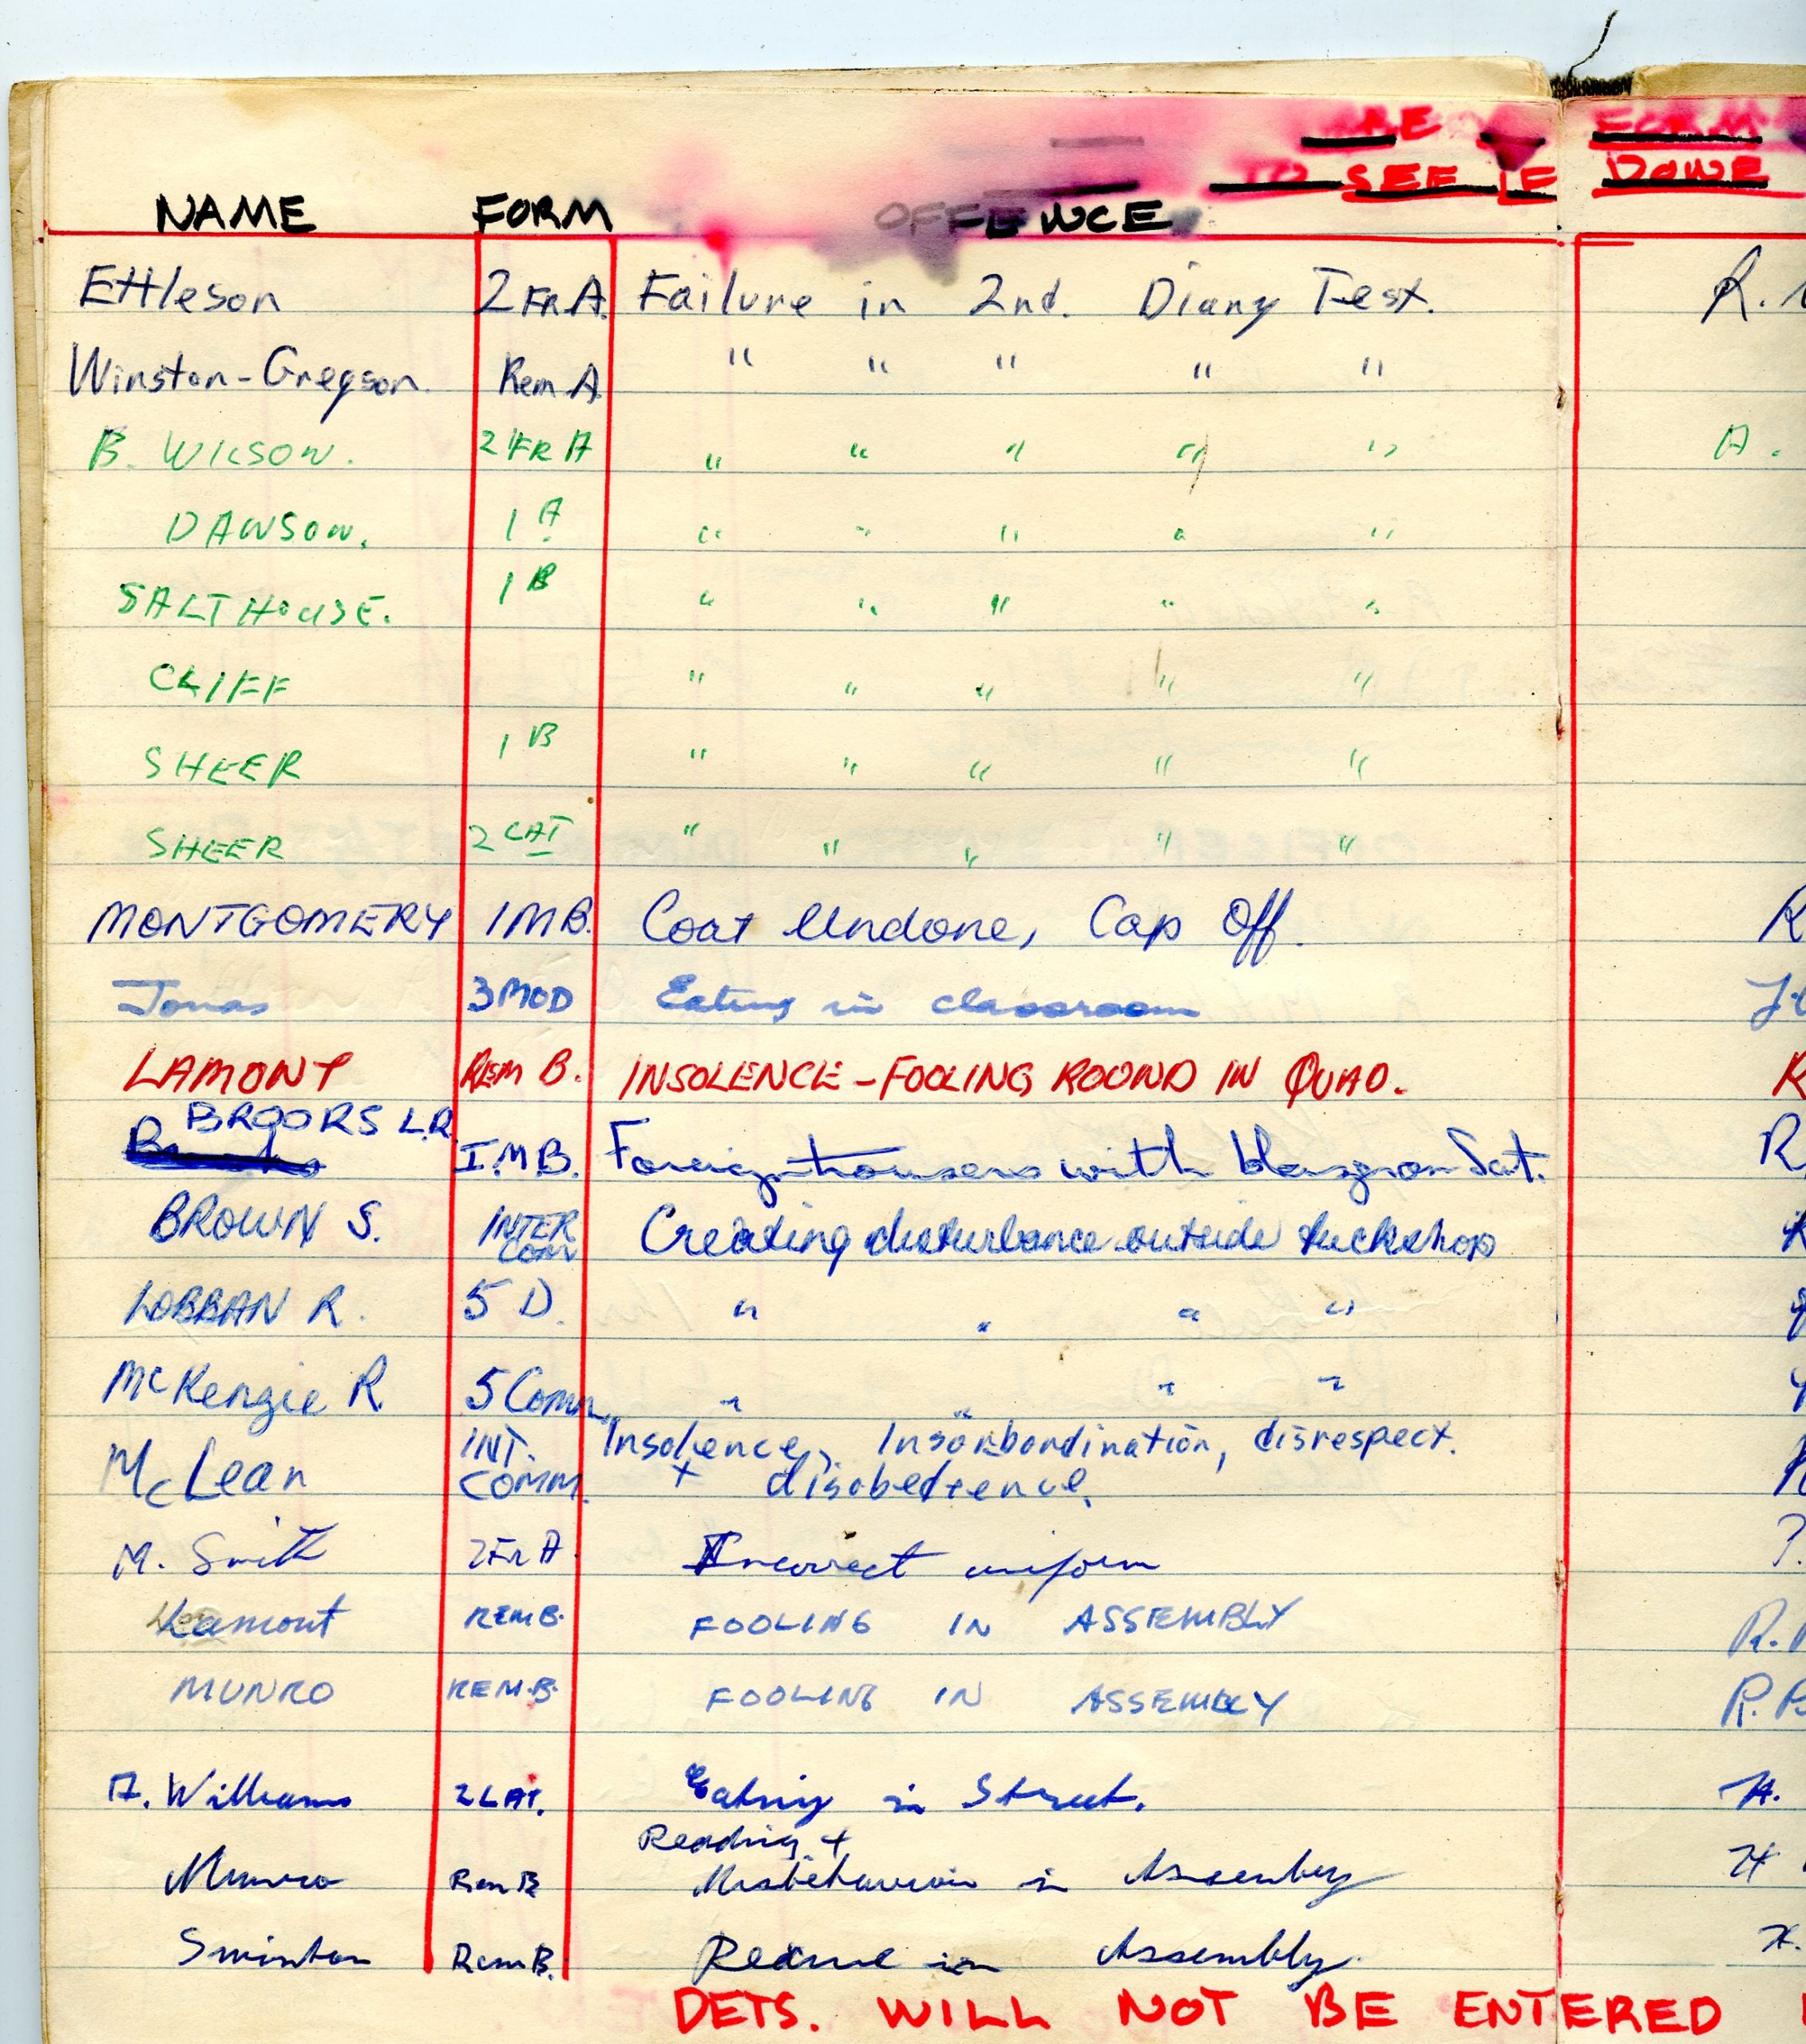 FORM
TO SEE IF DONE
NAME FORM OFFENCE
Ettleson 2 FR A. Failure in 2nd. Diary Test. R.
Winston-Gregson. Rem A. " " " " "
B. WILSON. 2 FR A " " " " " A.
DAWSON. 1 A " " " " "
SALTHOUSE. 1 B " " " " "
CLIFF " " " " "
SHEER 1 B " " " " "
SHEER 2 LAT " " " " "
MONTGOMERY 1MB. Coat Undone, Cap Off. R
Jonas 3 MOD Eating in classroom
LAMONT REM B. INSOLENCE - FOOLING ROUND IN QUAD. R
BROORS L.R.
I.M.B. Foreign trousers with blazer on Sat. R
BROWN S. INTER COMM Creating disturbance outside tuckshop
LOBBAN R. 5 D. " " " "
McKenzie R 5 Comm. " " " "
INT. Insolence, Insorbordination, disrespect.
McLean COMM. + disobedience.
M. Smith 2 Fr A. Incorrect uniform
Lamont REM B. FOOLING IN ASSEMBLY R.
MUNRO REM.B. FOOLING IN ASSEMBLY R.
A. Williams 2 LAT. Eating in Street. H.
Reading +
Munro Rem B Misbehaviour in Assembly H
Swinton Rem B. in Assembly. H.
DETS. WILL NOT BE ENTERED